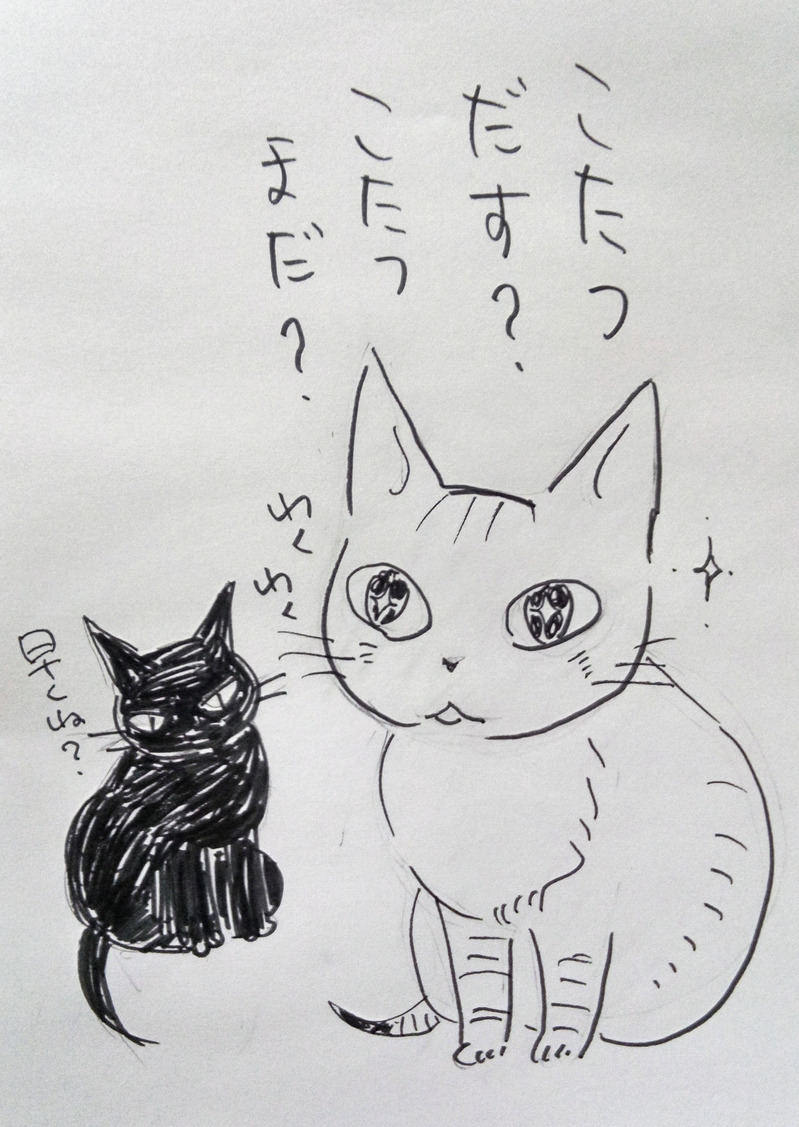 こたつ
だす？
こたつ
まだ？
わくわく
早くね？